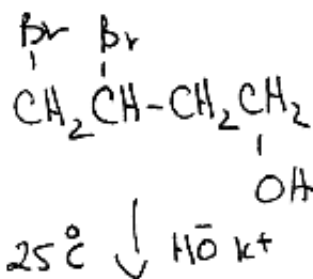 Br Br
CH₂CH-CH₂CH₂
OH
25°C HO⁻ K⁺